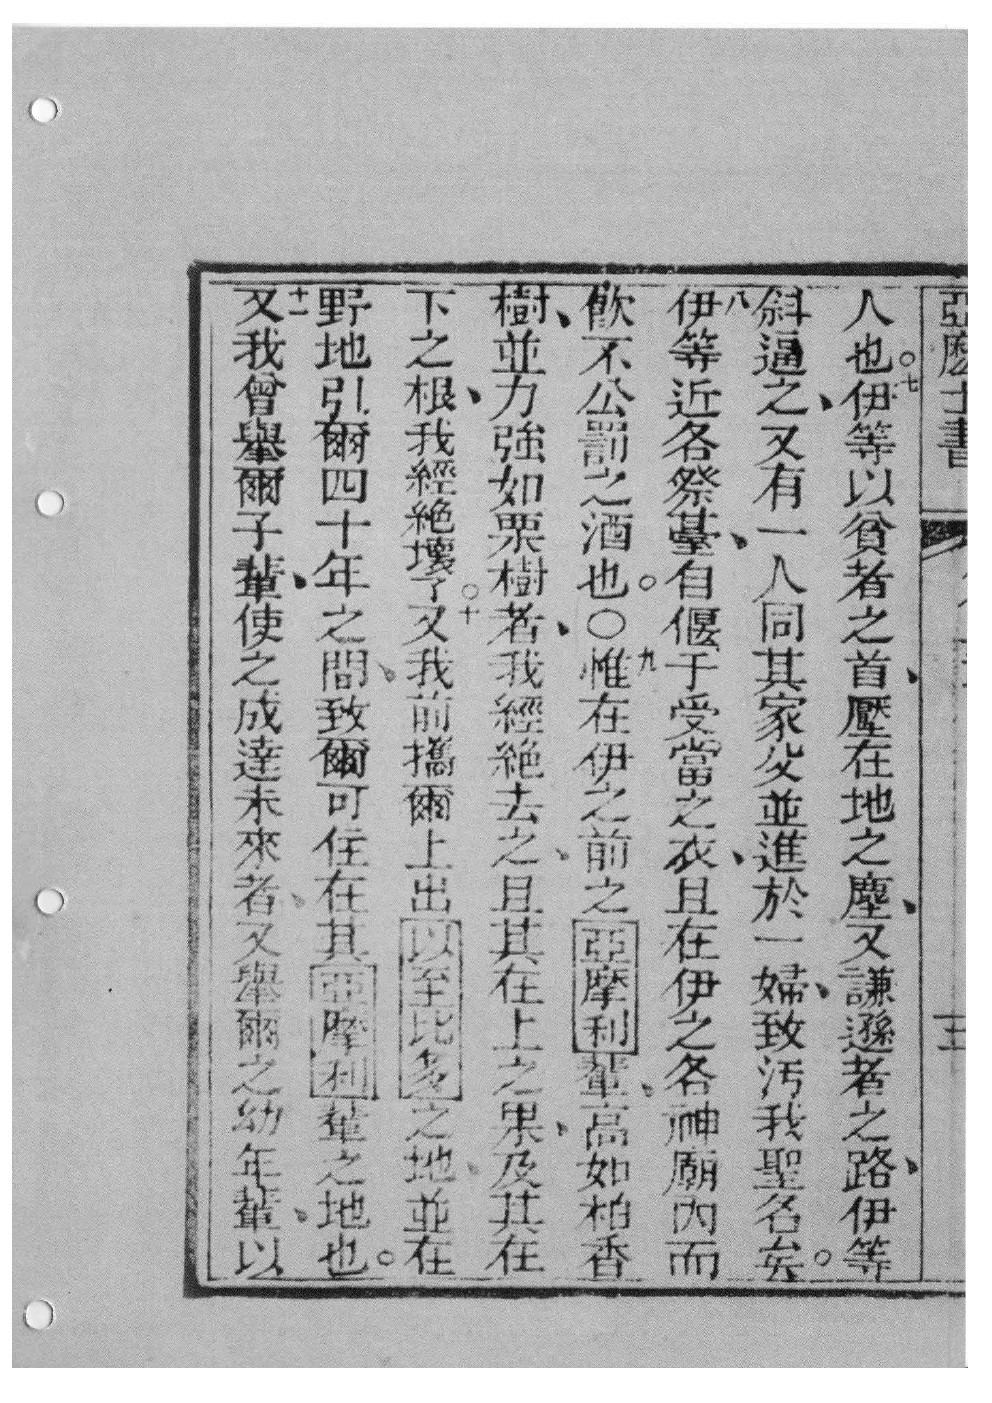 亞麽士書
人也。七伊等以貧者之首、壓在地之塵、又謙遜者之路、伊等
斜逼之、又有一人同其家父並進於一婦、致汚我聖名矣。
八伊等近各祭臺、自偃于受當之衣、且在伊之各神廟內而
飲不公罰之酒也。〇九惟在伊之前之亞摩利輩、高如柏香
樹、並力強如栗樹者、我經絕去之、且其在上之果、及其在
下之根、我經絕壞了。十又我前攜爾上出以至比多之地、並在
野地引爾四十年之間、致爾可住在其亞摩利輩之地也。
十一又我曾舉爾子輩、使之成達未來者、又舉爾之幼年輩、以